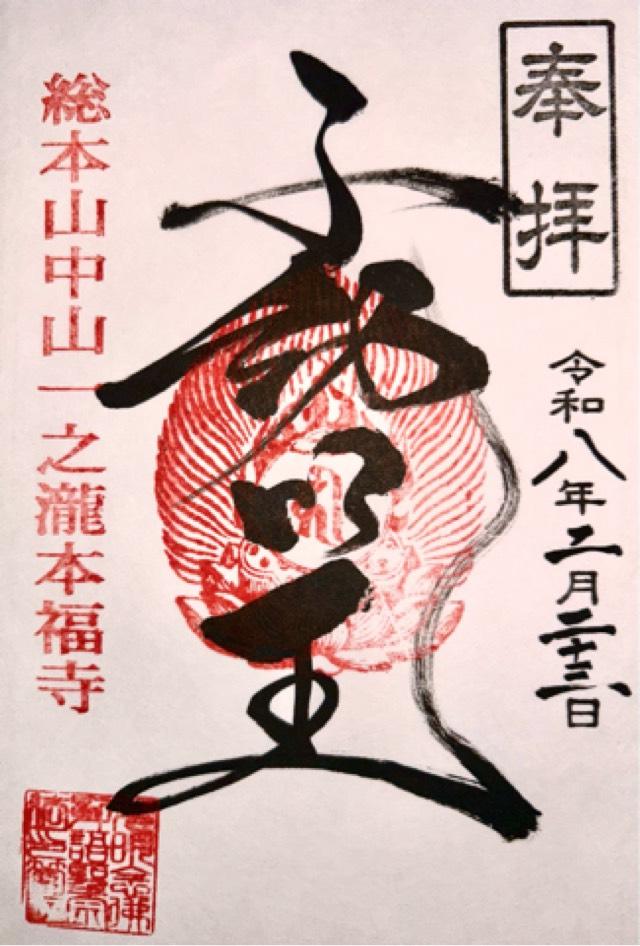 奉拝
令和八年二月二十三日
明王
総本山中山一之瀧本福寺